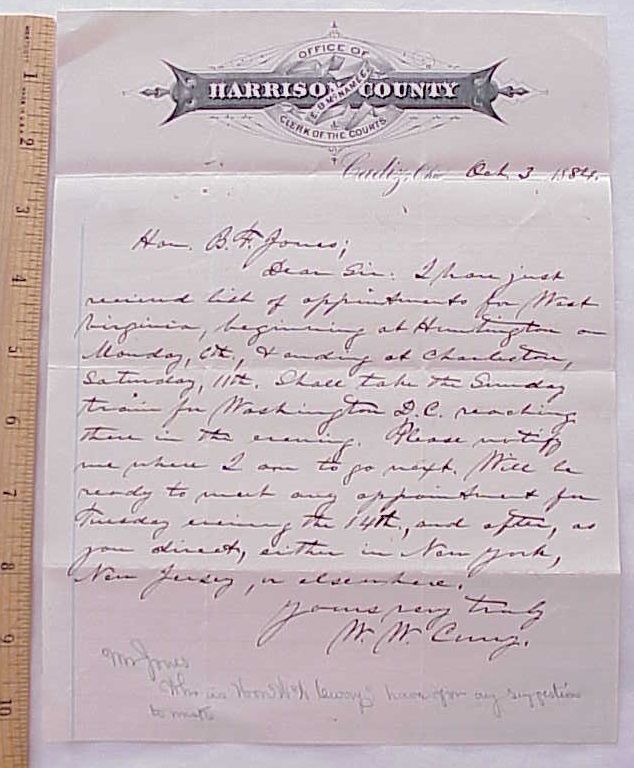 OFFICE OF
HARRISON COUNTY
E. D. McNAMEE
CLERK OF THE COURTS
Cadiz, Ohio Oct. 3 1884.
Hon. B. F. Jones;
Dear Sir: I have just
received list of appointments for West
Virginia, beginning at Huntington on
Monday, 6th, & ending at Charleston,
Saturday, 11th. Shall take the Sunday
train for Washington D.C. reaching
there in the evening. Please notify
me where I am to go next. Will be
ready to meet any appointment for
Tuesday evening the 14th, and after, as
you direct, either in New York,
New Jersey, or elsewhere.
Yours very truly
W. W. Curry.
Mr Jones
Who is Hon W W Curry? have you any suggestion
to make
1
2
3
4
5
6
7
8
9
10